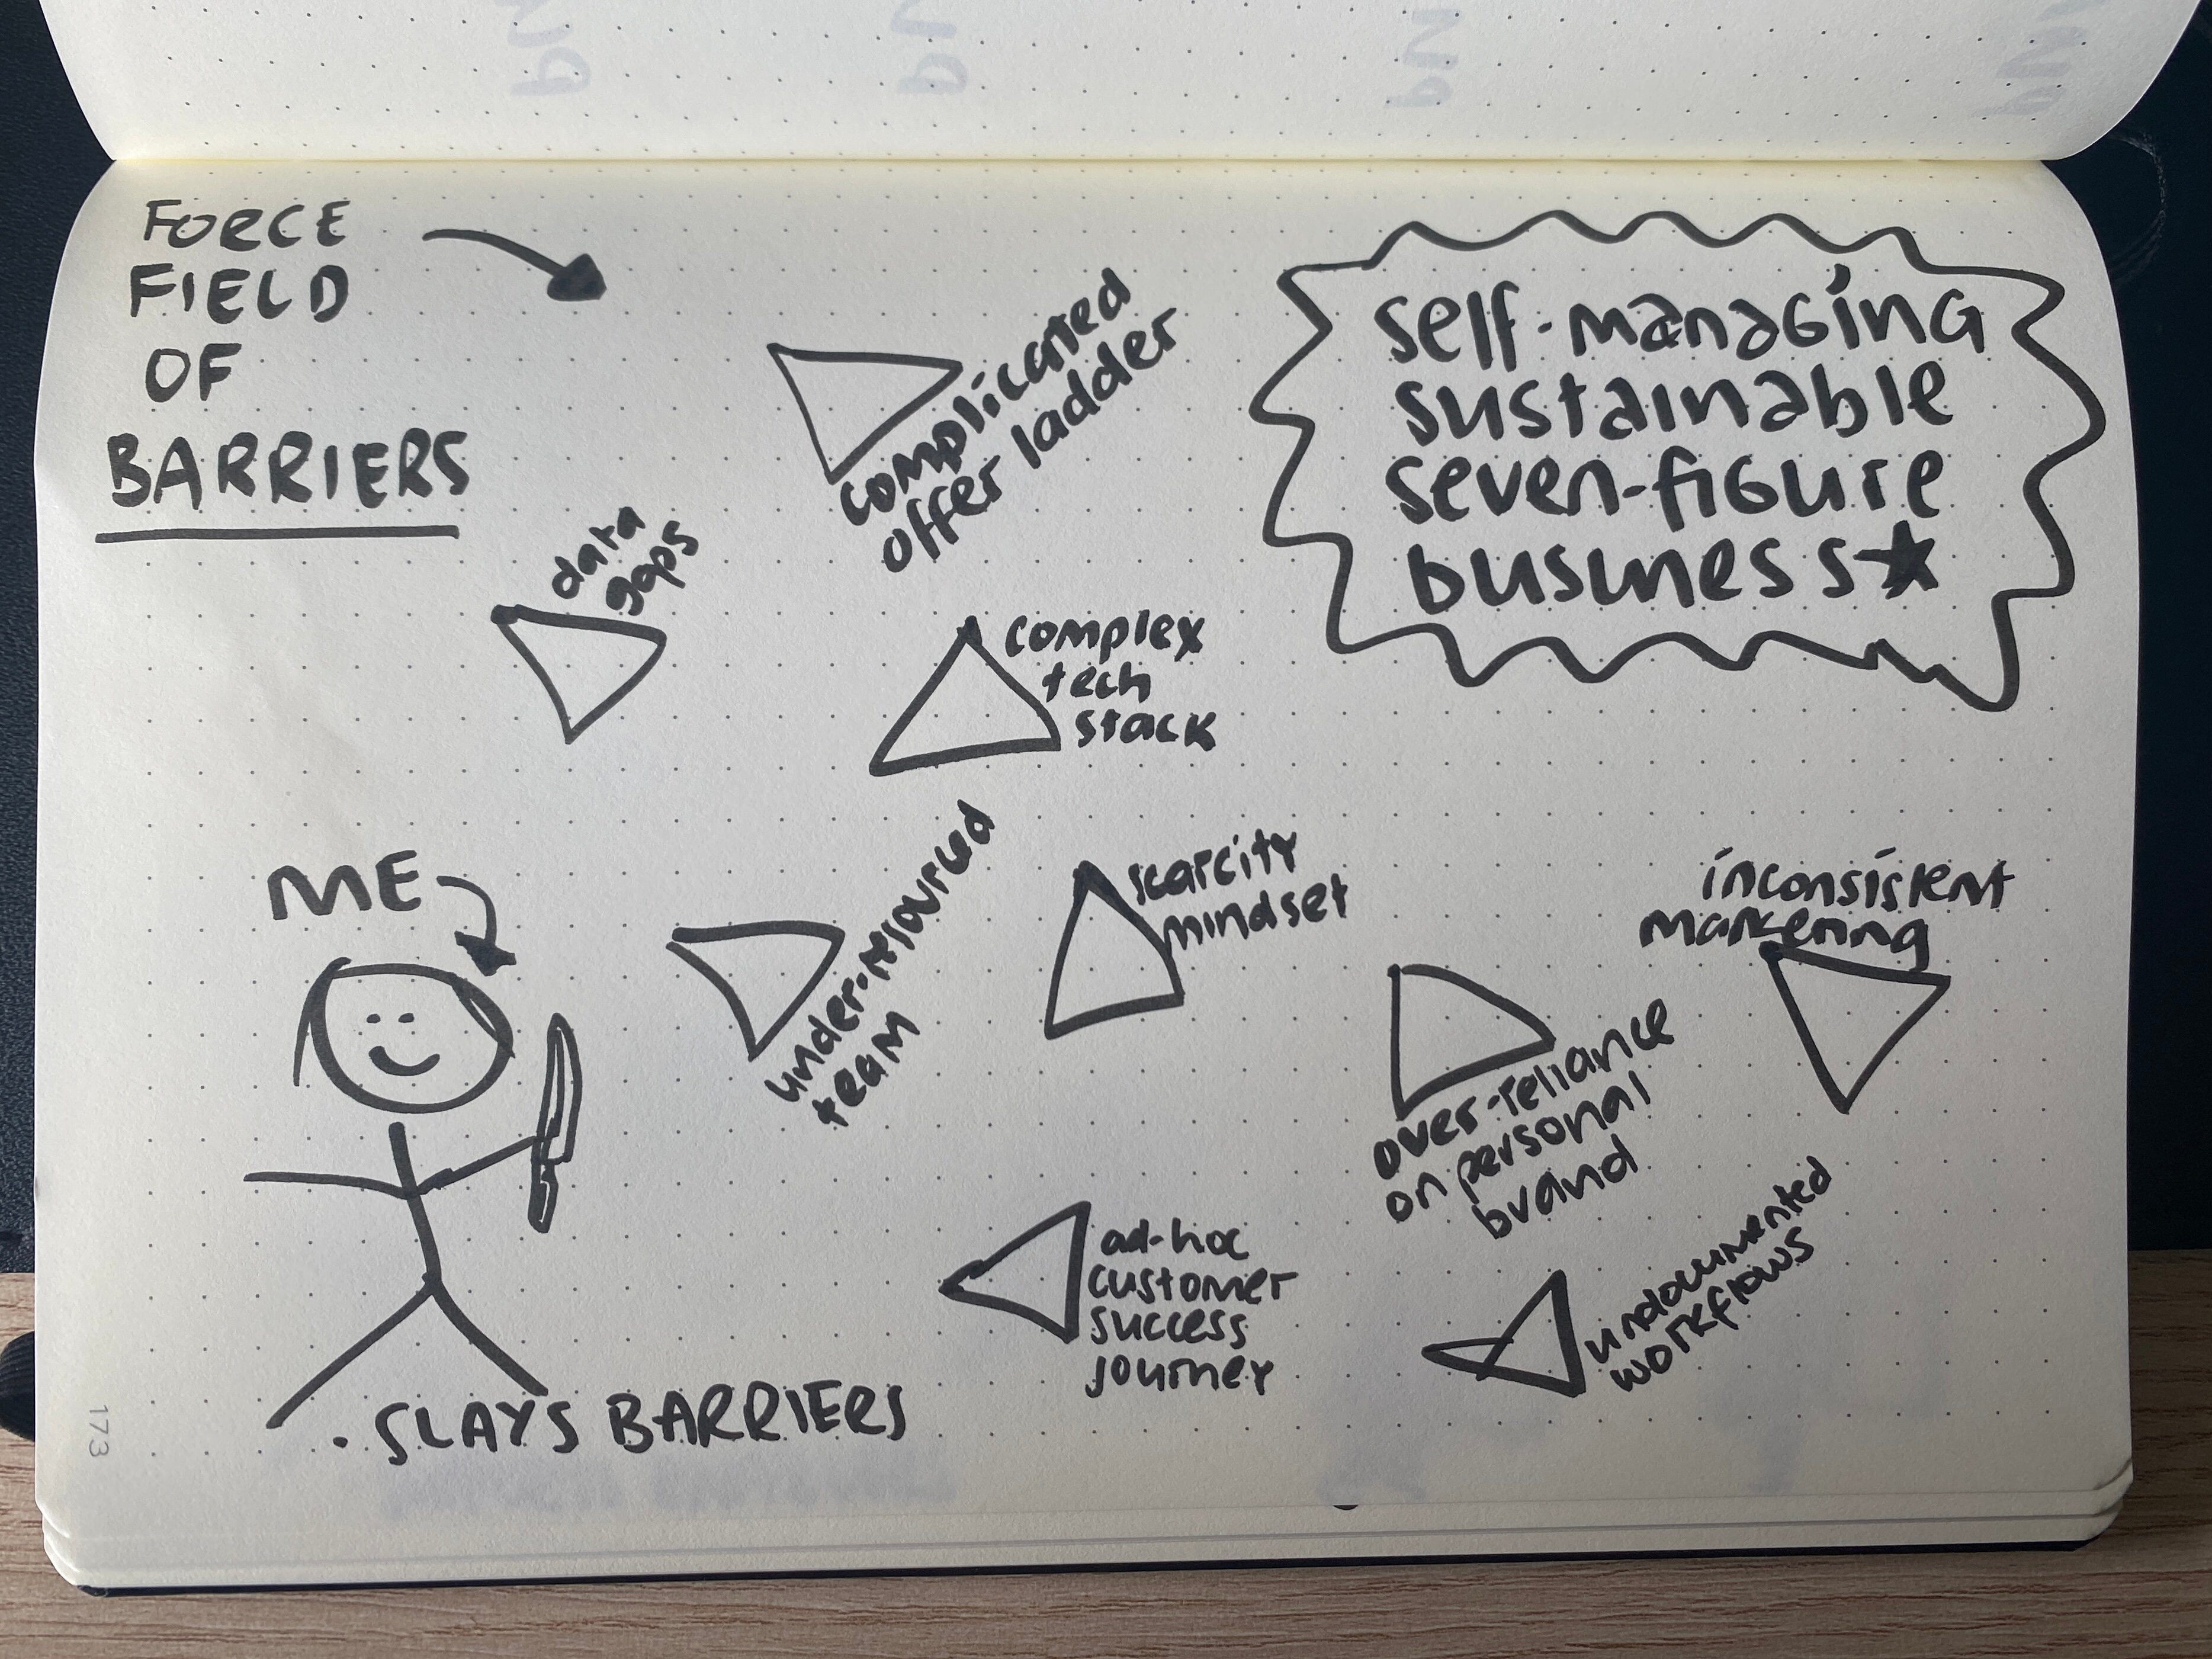 FORCE
FIELD
OF
BARRIERS
complicated
offer ladder
self-managing
sustainable
seven-figure
business
data
gaps
complex
tech
stack
ME
under-resourced
team
scarcity
mindset
inconsistent
marketing
over-reliance
on personal
brand
ad-hoc
customer
success
journey
undocumented
workflows
• SLAYS BARRIERS
173